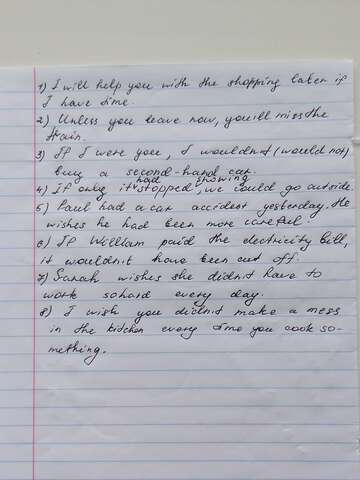 1) I will help you with the shopping later if
I have time.
2) Unless you leave now, you'ill miss the
train.
3) If I were you, I wouldn't (would not)
buy a second-hand car.
4) If only it had stopped showing, we could go outside.
5) Paul had a car accident yesterday. He
wishes he had been more careful.
6) If William paid the electricity bill,
it wouldn't have been cut off.
7) Sarah wishes she didn't have to
work so hard every day.
8) I wish you didn't make a mess
in the kitchen every time you cook so-
mething.